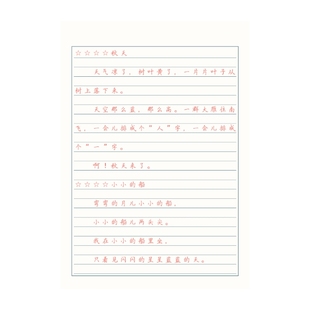 ☆☆☆☆秋天
天气凉了，树叶黄了，一片片叶子从
树上落下来。
天空那么蓝，那么高。一群大雁往南
飞，一会儿排成个“人”字，一会儿排成
个“一”字。
啊！秋天来了。
☆☆☆☆小小的船
弯弯的月儿小小的船，
小小的船儿两头尖。
我在小小的船里坐，
只看见闪闪的星星蓝蓝的天。